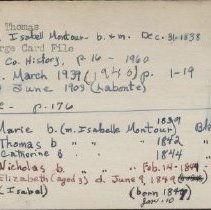 Thomas
Isabell Montour b. & m. Dec. 31-1838
Large Card File
Co. History, p. 16 - 1960
March 1939 (1940) p. 1-19
June 1905 (Labonte)
- p. 176
Marie b. (m. Isabelle Montour) 1839
Thomas b 1842
Catherine b 1844
Nicholas b. Feb. 14-
Elizabeth (aged 3) d. June 9, 1849
(Isabel) (born 184
Nov. 10